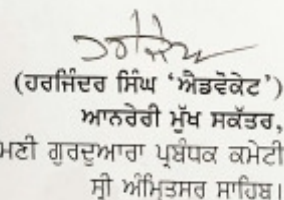 (ਹਰਜਿੰਦਰ ਸਿੰਘ ‘ਐਡਵੋਕੇਟ’)
ਆਨਰੇਰੀ ਮੁੱਖ ਸਕੱਤਰ,
ਮਣੀ ਗੁਰਦੁਆਰਾ ਪ੍ਰਬੰਧਕ ਕਮੇਟੀ
ਸ੍ਰੀ ਅੰਮ੍ਰਿਤਸਰ ਸਾਹਿਬ।